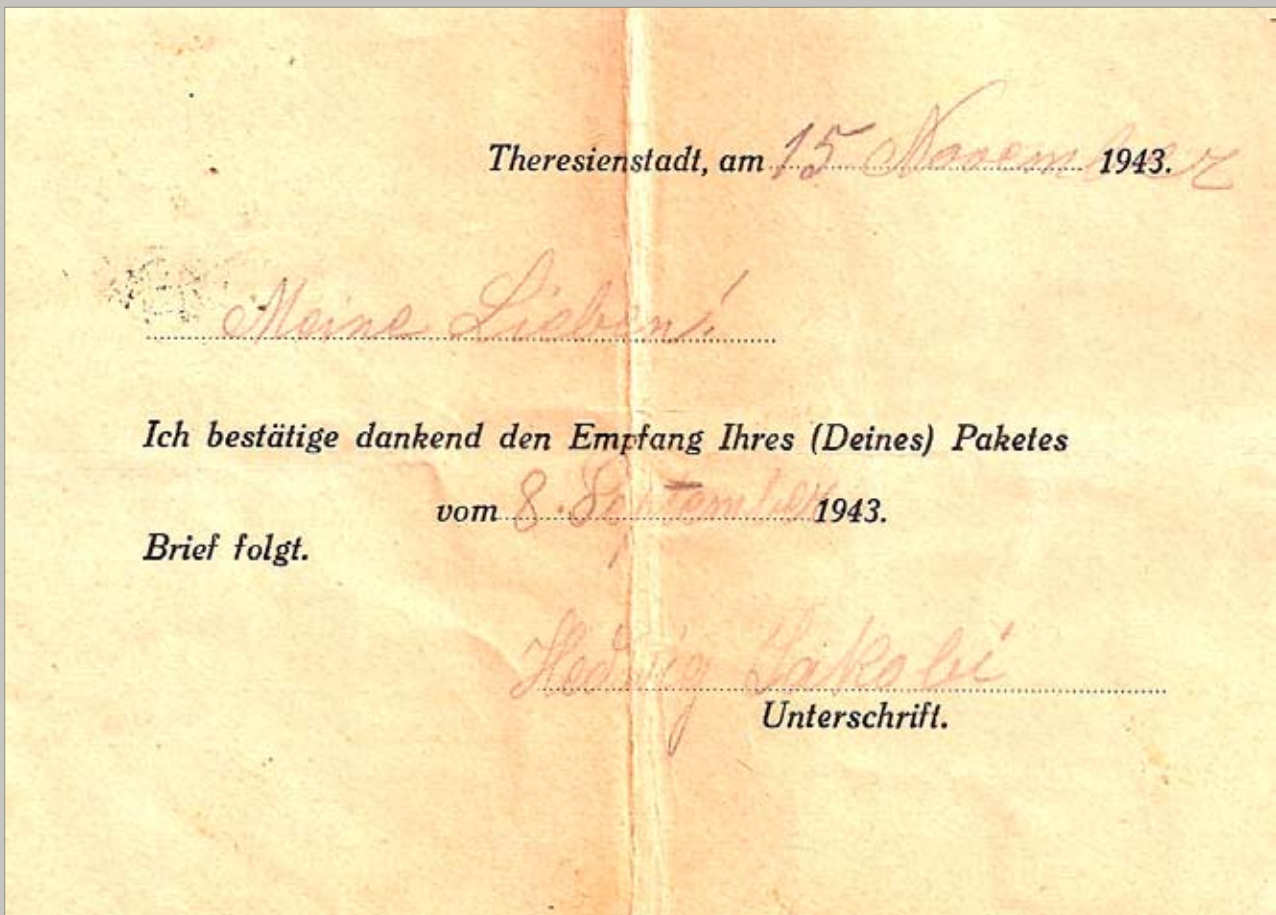 Theresienstadt, am 15 November 1943.
Meine Lieben!
Ich bestätige dankend den Empfang Ihres (Deines) Paketes
vom 8. September 1943.
Brief folgt.
Hedwig Jakobi
Unterschrift.